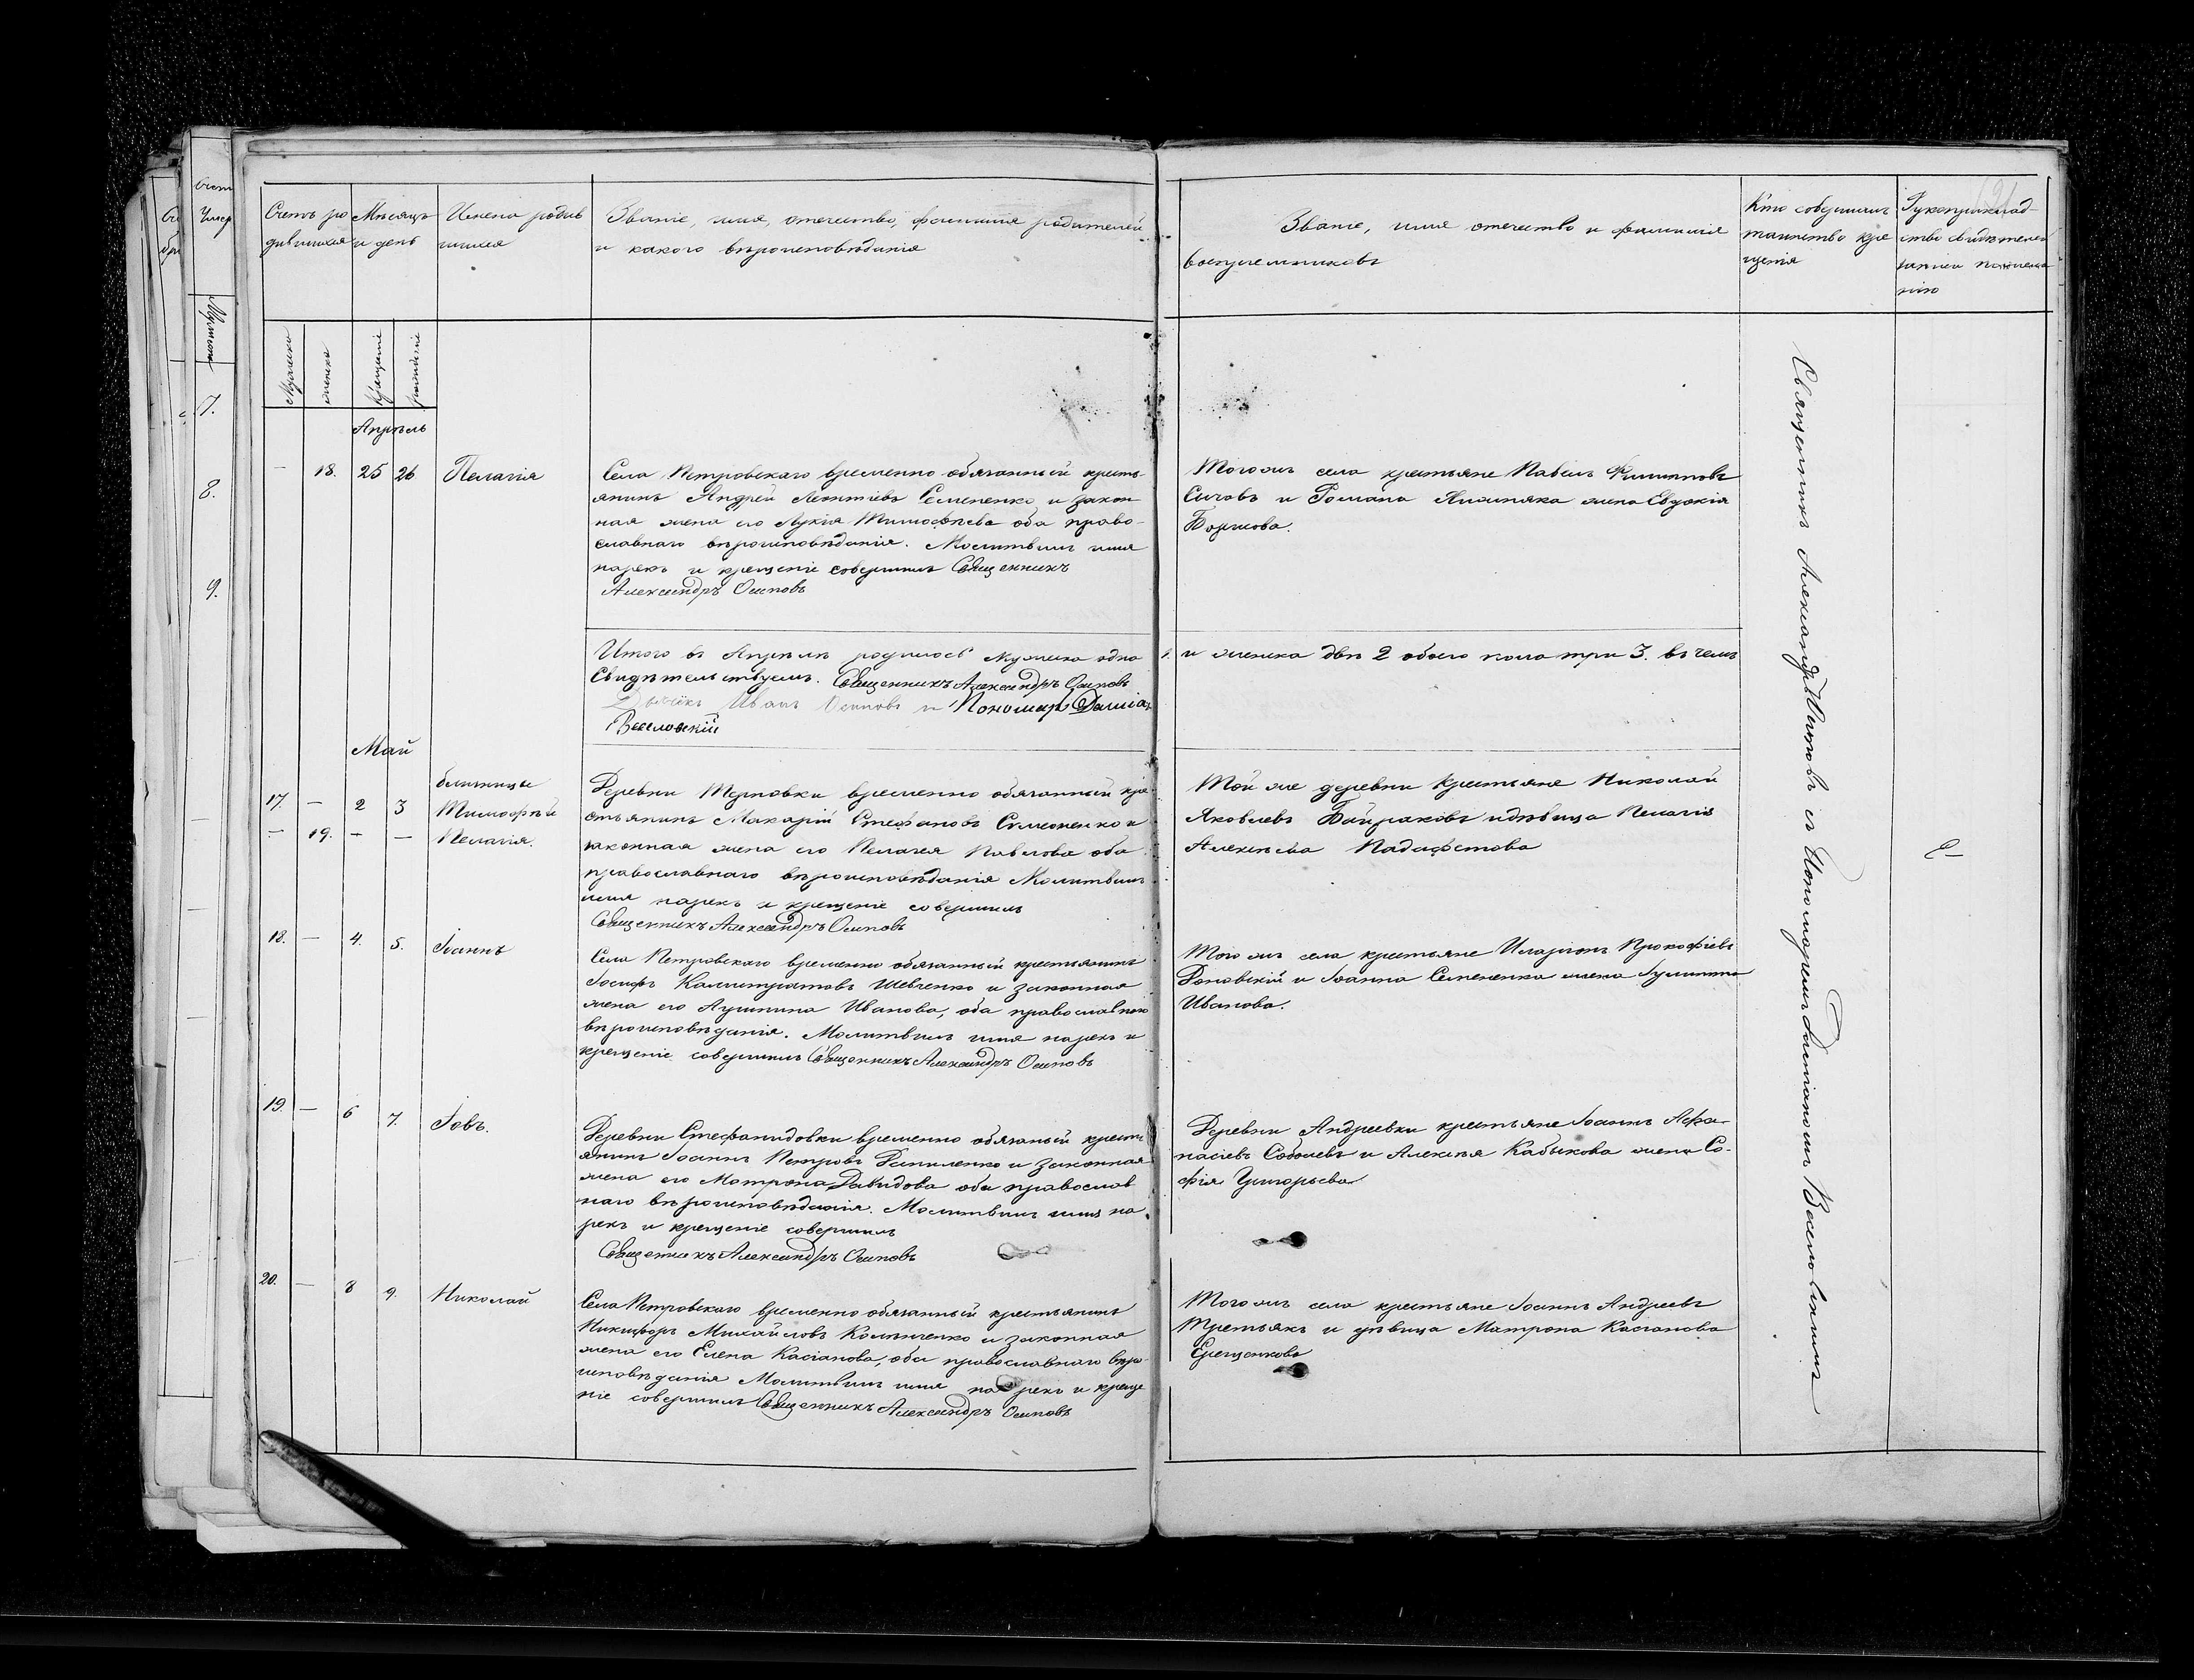 Счетъ ро
дившихся
Мѣсяцъ
и день
Имена родив
шихся
Званіе, имя, отечество, фамилія родителей
и какого вѣроисповѣданія
Званіе, имя отечество и фамилія
воспріемниковъ
Кто совершилъ
таинство кре
щенія
Рукоприклад-
ство свидѣтелей
записи по желан
нію
Мужеска
женска
Крещеніе
рожденіе
Апрѣль
— 18. 25 26 Пелагія
Села Петровскаго временно обязанный кресть
янинъ Андрей Леонтіевъ Семененко и закон
ная жена его Лукія Тимофѣева оба право-
славнаго вѣроисповѣданія. Молитвилъ имя
нарекъ и крещеніе совершилъ Священникъ
Александръ Осиповъ
Тогожъ села крестьяне Павелъ Филипповъ
Сичовъ и Романа жена Евдокія
Итого въ Апрѣлѣ родилось мужеска одно 1. и женска двѣ 2 обоего пола три 3. въ чемъ
Свидѣтельствуемъ. Священникъ Александръ Осиповъ
Дьячекъ Иванъ Осиповъ и Пономарь Даміан
Веселовскій
Май
близнецы
17. — 2 3 Тимофѣй
— 19. — — Пелагія.
Деревни Терновки временно обязанный кре
стьянинъ Макарій Стефановъ Семененко и
законная жена его Пелагея Павлова оба
православнаго вѣроисповѣданія Молитвилъ
имя нарекъ и крещеніе совершилъ
Священникъ Александръ Осиповъ
Той же деревни крестьяне Николай
Яковлевъ Байраковъ и дѣвица Пелагія
Алексѣева
18. — 4. 5. Іоаннъ
Села Петровскаго временно обязанный крестьянинъ
Іосифъ Каллистратовъ Шевченко и законная
жена его Акулина Иванова, оба православнаго
вѣроисповѣданія. Молитвилъ имя нарекъ и
крещеніе совершилъ Священникъ Александръ Осиповъ
Тогожъ села крестьяне Иларіонъ Прокофіевъ
и Іоанна Семененка жена
Иванова.
19. — 6 7. Іовъ.
Деревни Стефанидовки временно обязаный кресть
янинъ Іоаннъ Петровъ Даниленко и законная
жена его Матрона Давидова оба православ
наго вѣроисповѣданія. Молитвилъ имя на
рекъ и крещеніе совершилъ
Священникъ Александръ Осиповъ
Деревни Андреевки крестьяне Іоаннъ Афа-
насіевъ Соболевъ и Алексѣя Кабыкова жена Со-
фія Григорьева
20. — 8 9. Николай
Села Петровскаго временно обязанный крестьянинъ
Никифоръ Михайловъ и законная
жена его Елена Касіанова, оба православнаго вѣро
исповѣданія Молитвилъ имя нарекъ и креще
ніе совершилъ Священникъ Александръ Осиповъ
Тогожъ села крестьяне Іоаннъ Андреевъ
Третьякъ и дѣвица Матрона Касіанова
Ерещенкова
Священникъ Александръ Осиповъ съ Пономаремъ Даміаномъ Веселовскимъ
7.
8.
9.